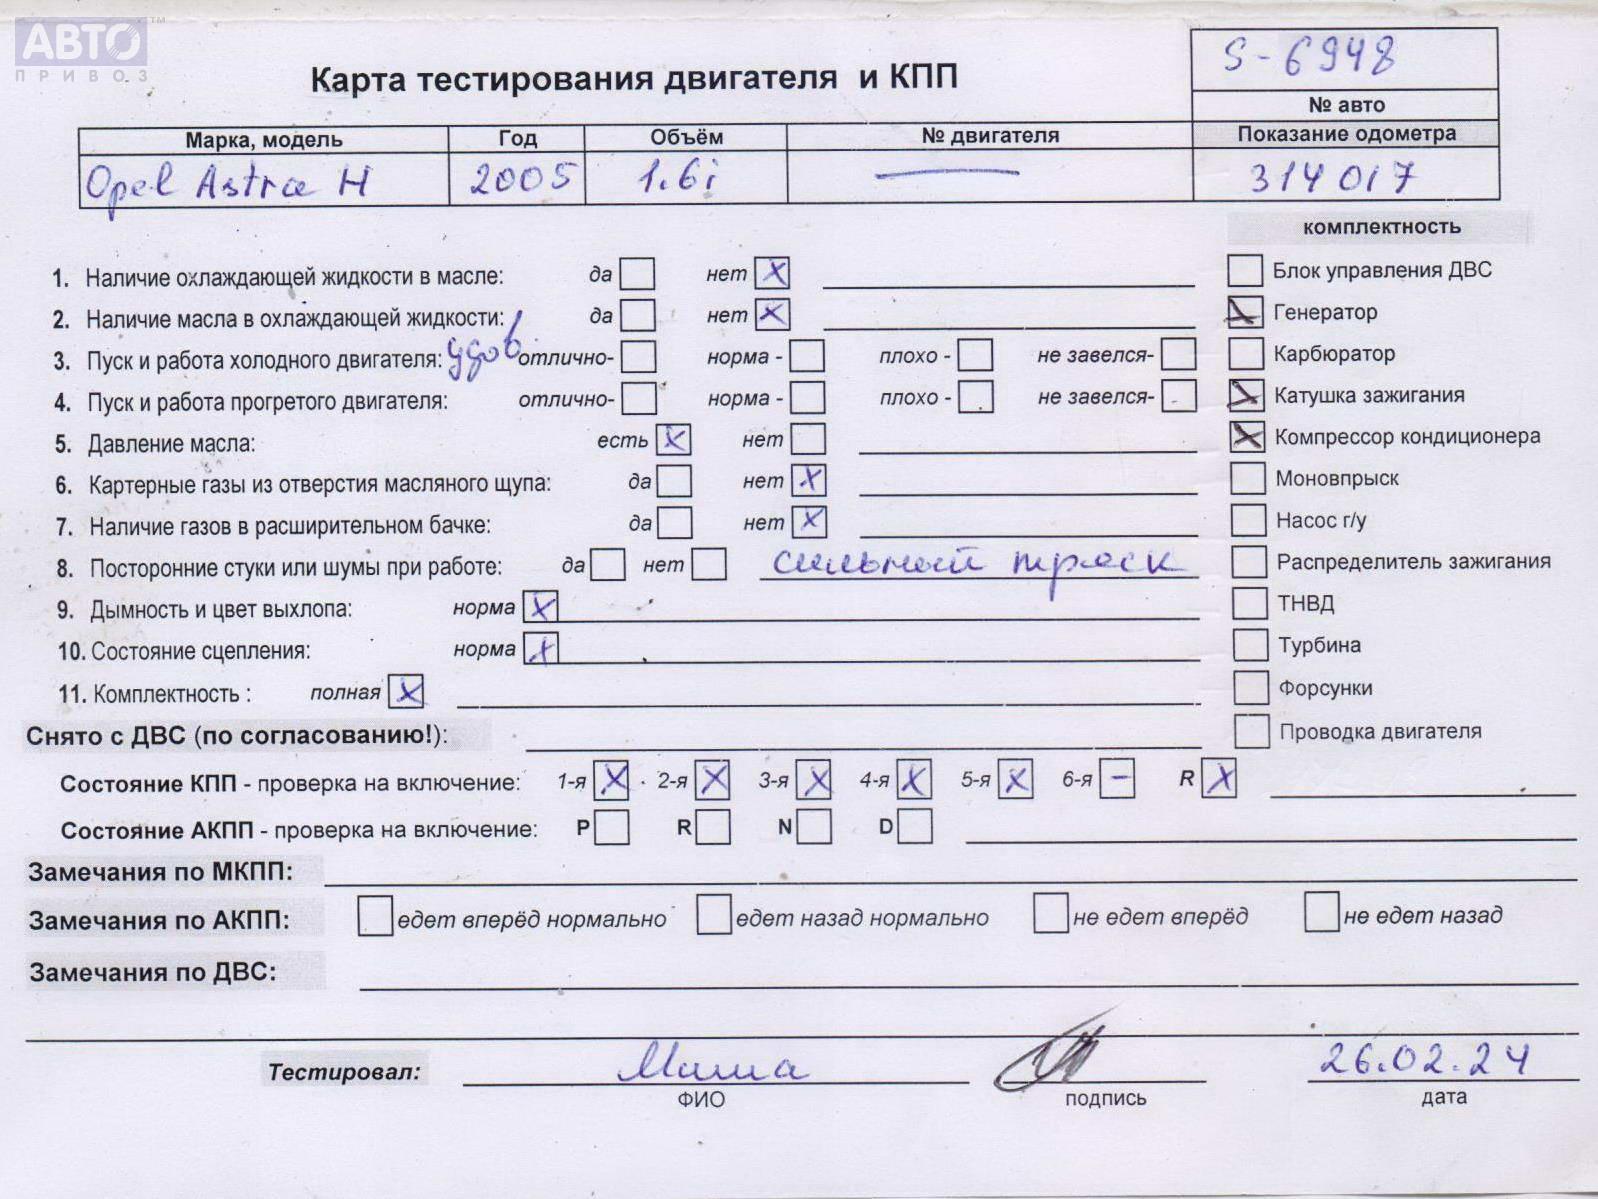 АВТО™
ПРИВОЗ
S-6948
Карта тестирования двигателя и КПП
№ авто
Марка, модель Год Объём № двигателя Показание одометра
Opel Astra H 2005 1.6i — 314017
комплектность
1. Наличие охлаждающей жидкости в масле: да нет X Блок управления ДВС
2. Наличие масла в охлаждающей жидкости: да нет X X Генератор
3. Пуск и работа холодного двигателя: удов. отлично- норма - плохо - не завелся- Карбюратор
4. Пуск и работа прогретого двигателя: отлично- норма - плохо - не завелся- X Катушка зажигания
5. Давление масла: есть X нет X Компрессор кондиционера
6. Картерные газы из отверстия масляного щупа: да нет X Моновпрыск
7. Наличие газов в расширительном бачке: да нет X Насос г/у
8. Посторонние стуки или шумы при работе: да нет сильный треск Распределитель зажигания
9. Дымность и цвет выхлопа: норма X ТНВД
10. Состояние сцепления: норма X Турбина
11. Комплектность : полная X Форсунки
Снято с ДВС (по согласованию!): Проводка двигателя
Состояние КПП - проверка на включение: 1-я X 2-я X 3-я X 4-я X 5-я X 6-я – R X
Состояние АКПП - проверка на включение: P R N D
Замечания по МКПП:
Замечания по АКПП: едет вперёд нормально едет назад нормально не едет вперёд не едет назад
Замечания по ДВС:
Тестировал: Миша 26.02.24
ФИО подпись дата